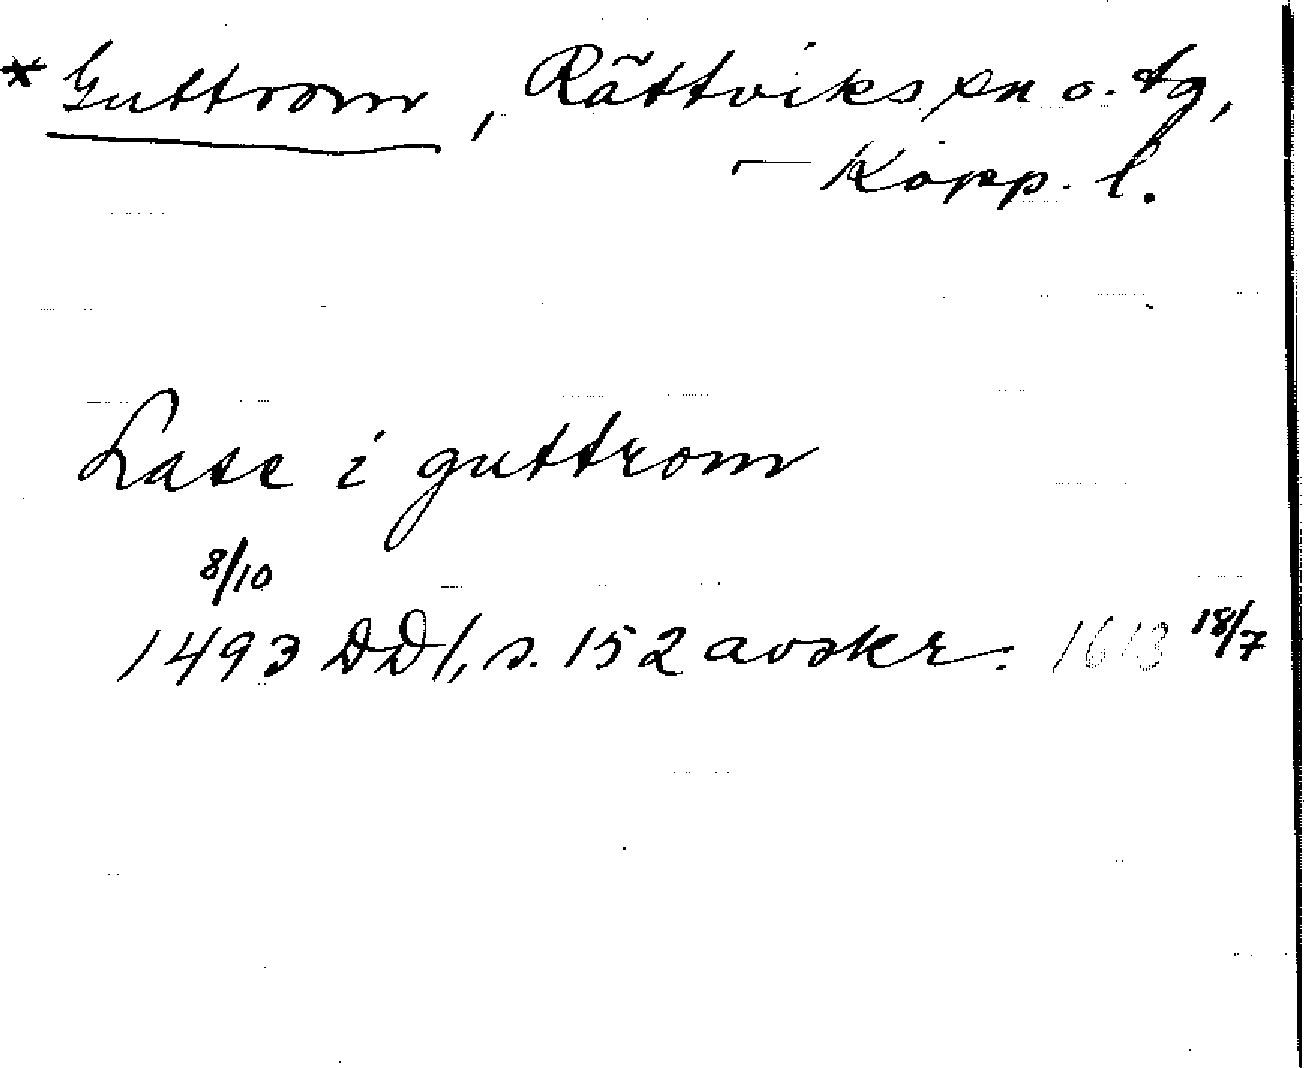 * Guttrom, Rättviks sn o. tg,
Kopp. l.
Lase i guttrom
8/10
1493 DD 1, s. 152 avskr. 1613 18/7